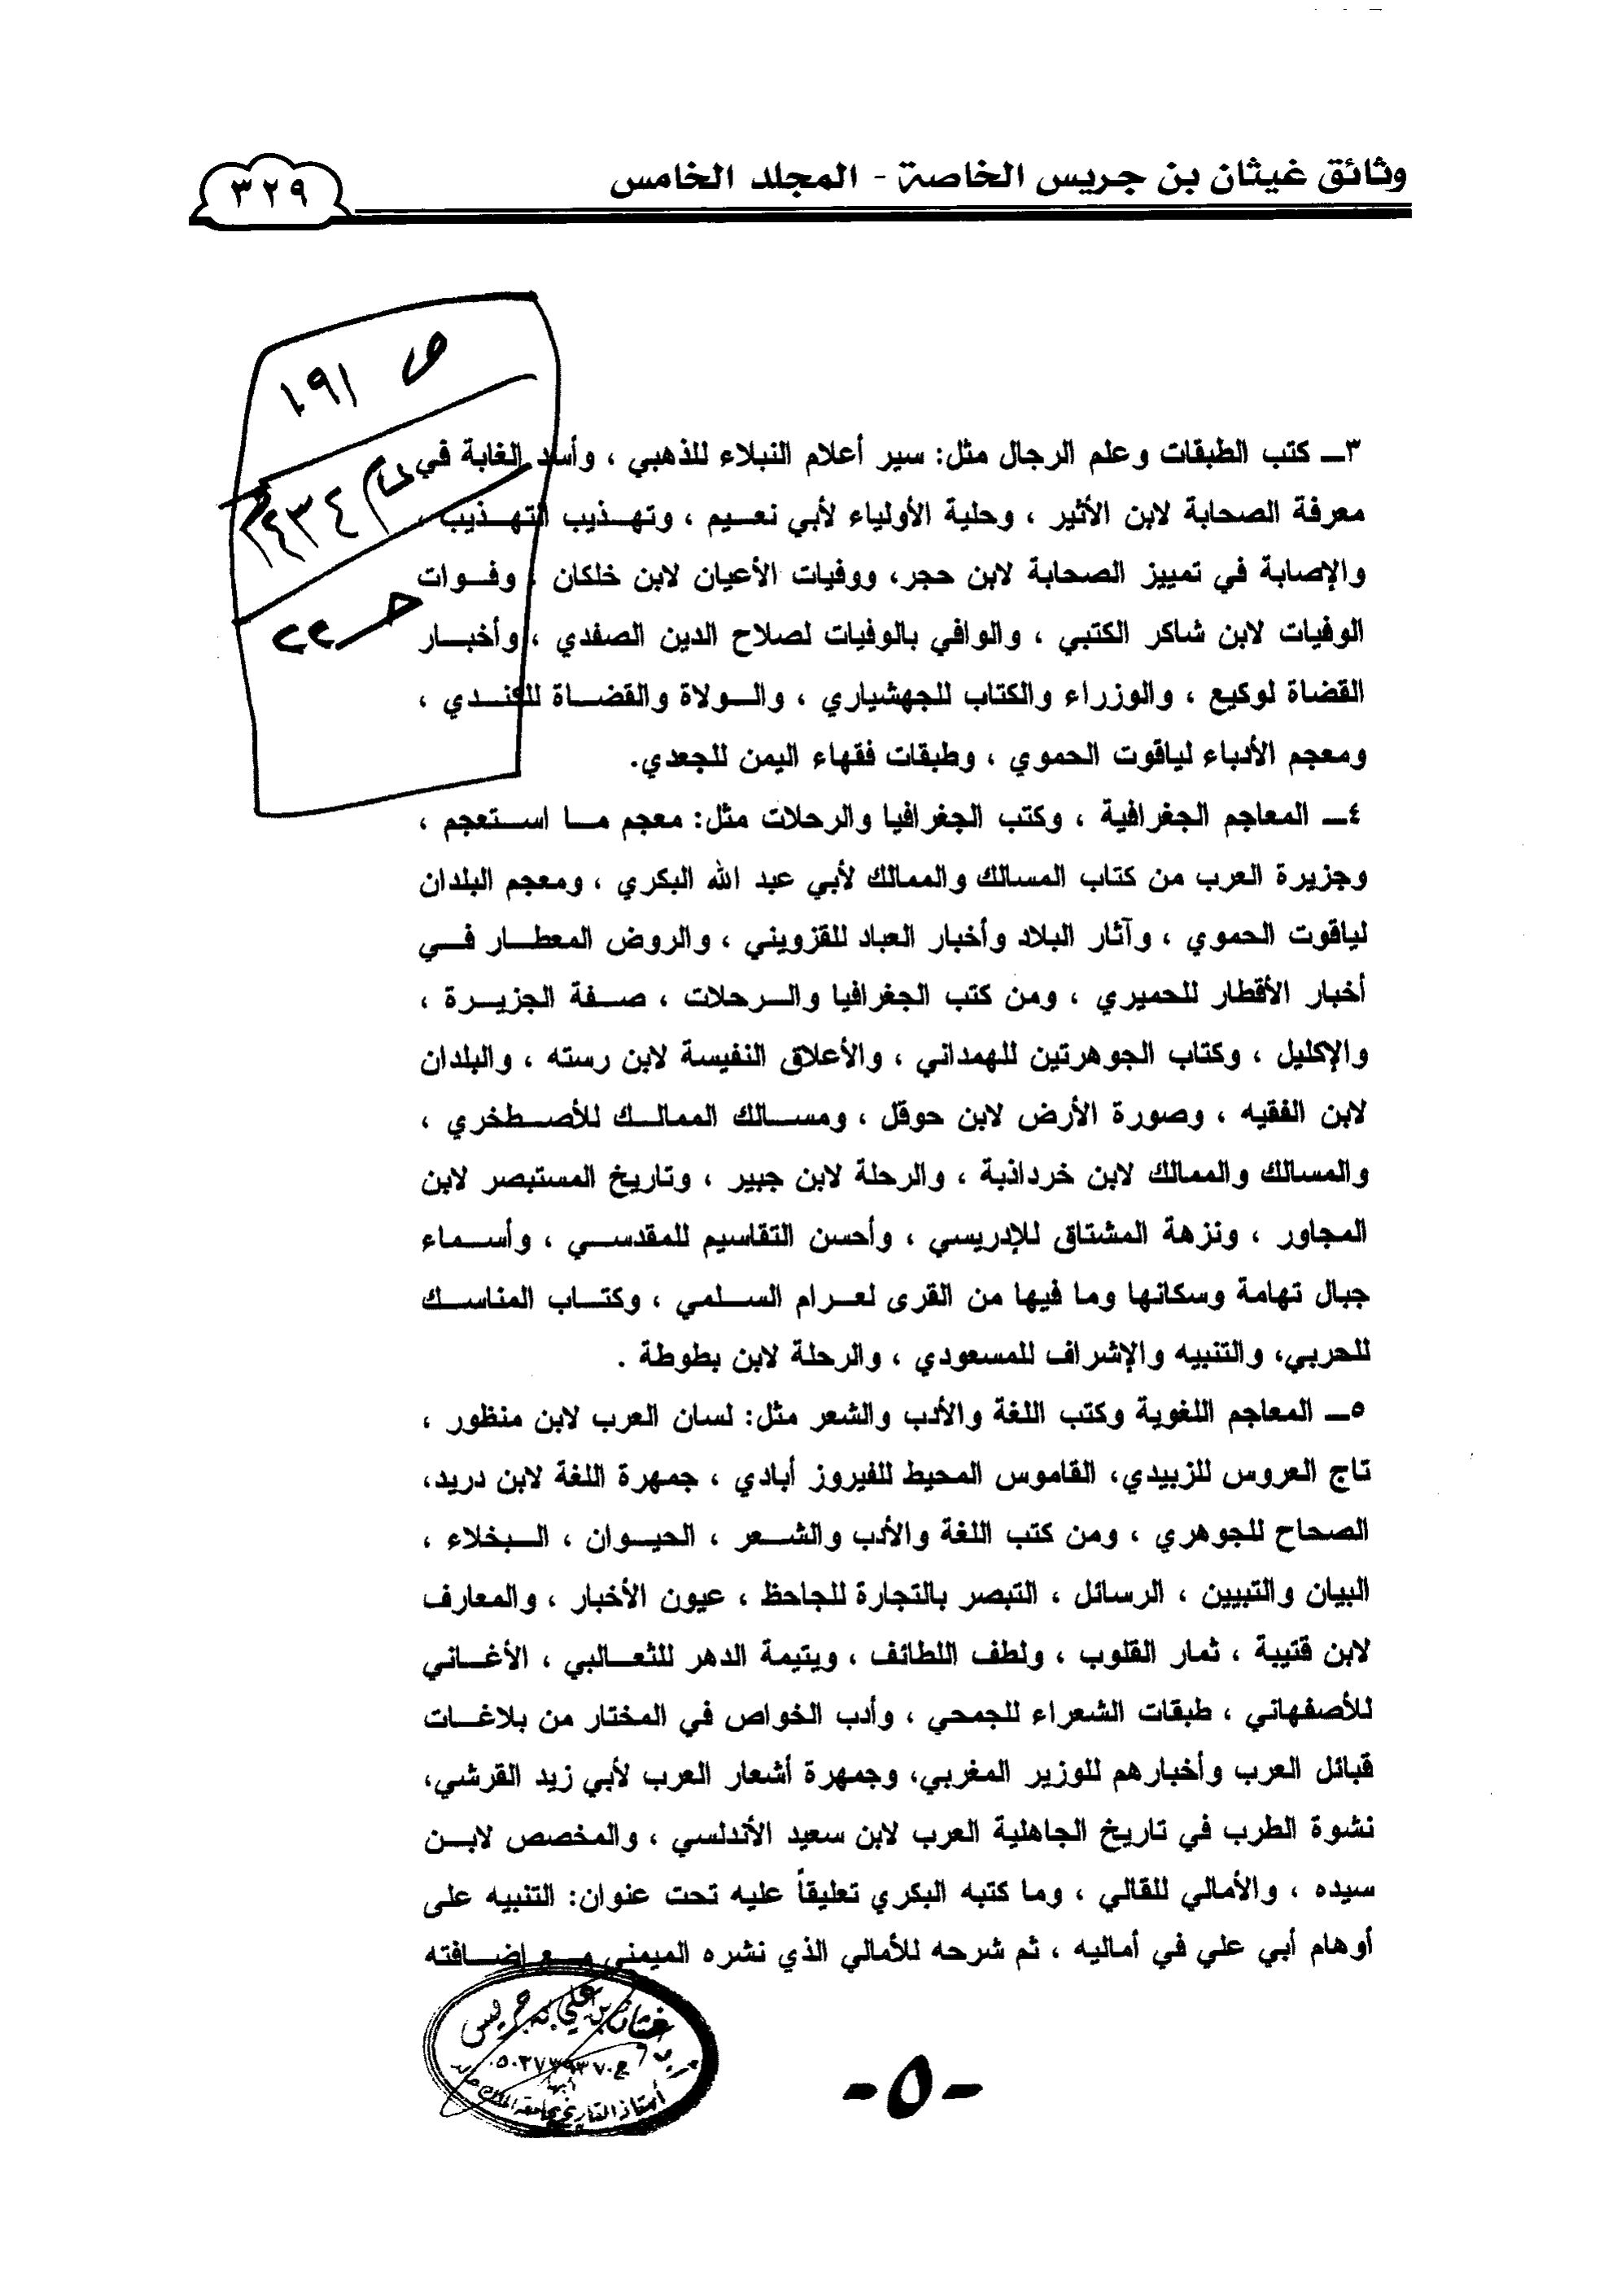 وثائق غيثان بن جريس الخاصة - المجلد الخامس
٣٢٩
ص ١٩١
١٤٣٤
ح ٢٢
٣ــ كتب الطبقات وعلم الرجال مثل: سير أعلام النبلاء للذهبي ، وأسد الغابة في
معرفة الصحابة لابن الأثير ، وحلية الأولياء لأبي نعـيم ، وتهـذيب التهـذيب ،
والإصابة في تمييز الصحابة لابن حجر، ووفيات الأعيان لابن خلكان ، وفـوات
الوفيات لابن شاكر الكتبي ، والوافي بالوفيات لصلاح الدين الصفدي ، وأخبـار
القضاة لوكيع ، والوزراء والكتاب للجهشياري ، والـولاة والقضـاة للكنـدي ،
ومعجم الأدباء لياقوت الحموي ، وطبقات فقهاء اليمن للجعدي.
٤ــ المعاجم الجغرافية ، وكتب الجغرافيا والرحلات مثل: معجم مـا استـعجم ،
وجزيرة العرب من كتاب المسالك والممالك لأبي عبد الله البكري ، ومعجم البلدان
لياقوت الحموي ، وآثار البلاد وأخبار العباد للقزويني ، والروض المعطـار فـي
أخبار الأقطار للحميري ، ومن كتب الجغرافيا والـرحلات ، صـفة الجزيـرة ،
والإكليل ، وكتاب الجوهرتين للهمداني ، والأعلاق النفيسة لابن رسته ، والبلدان
لابن الفقيه ، وصورة الأرض لابن حوقل ، ومسـالك الممالـك للأصـطخري ،
والمسالك والممالك لابن خرداذبة ، والرحلة لابن جبير ، وتاريخ المستبصر لابن
المجاور ، ونزهة المشتاق للإدريسي ، وأحسن التقاسيم للمقدسـي ، وأسـماء
جبال تهامة وسكانها وما فيها من القرى لعـرام السـلمي ، وكتـاب المناسـك
للحربي، والتنبيه والإشراف للمسعودي ، والرحلة لابن بطوطة .
٥ــ المعاجم اللغوية وكتب اللغة والأدب والشعر مثل: لسان العرب لابن منظور ،
تاج العروس للزبيدي، القاموس المحيط للفيروز أبادي ، جمهرة اللغة لابن دريد،
الصحاح للجوهري ، ومن كتب اللغة والأدب والشـعر ، الحيـوان ، الـبخلاء ،
البيان والتبيين ، الرسائل ، التبصر بالتجارة للجاحظ ، عيون الأخبار ، والمعارف
لابن قتيبة ، ثمار القلوب ، ولطف اللطائف ، ويتيمة الدهر للثعـالبي ، الأغـاني
للأصفهاني ، طبقات الشعراء للجمحي ، وأدب الخواص في المختار من بلاغـات
قبائل العرب وأخبارهم للوزير المغربي، وجمهرة أشعار العرب لأبي زيد القرشي،
نشوة الطرب في تاريخ الجاهلية العرب لابن سعيد الأندلسي ، والمخصص لابـن
سيده ، والأمالي للقالي ، وما كتبه البكري تعليقاً عليه تحت عنوان: التنبيه على
أوهام أبي علي في أماليه ، ثم شرحه للأمالي الذي نشره الميمني مـع إضـافته
غيثان بن علي بن جريس
أبها
أستاذ التاريخ بجامعة الملك خالد
-٥-